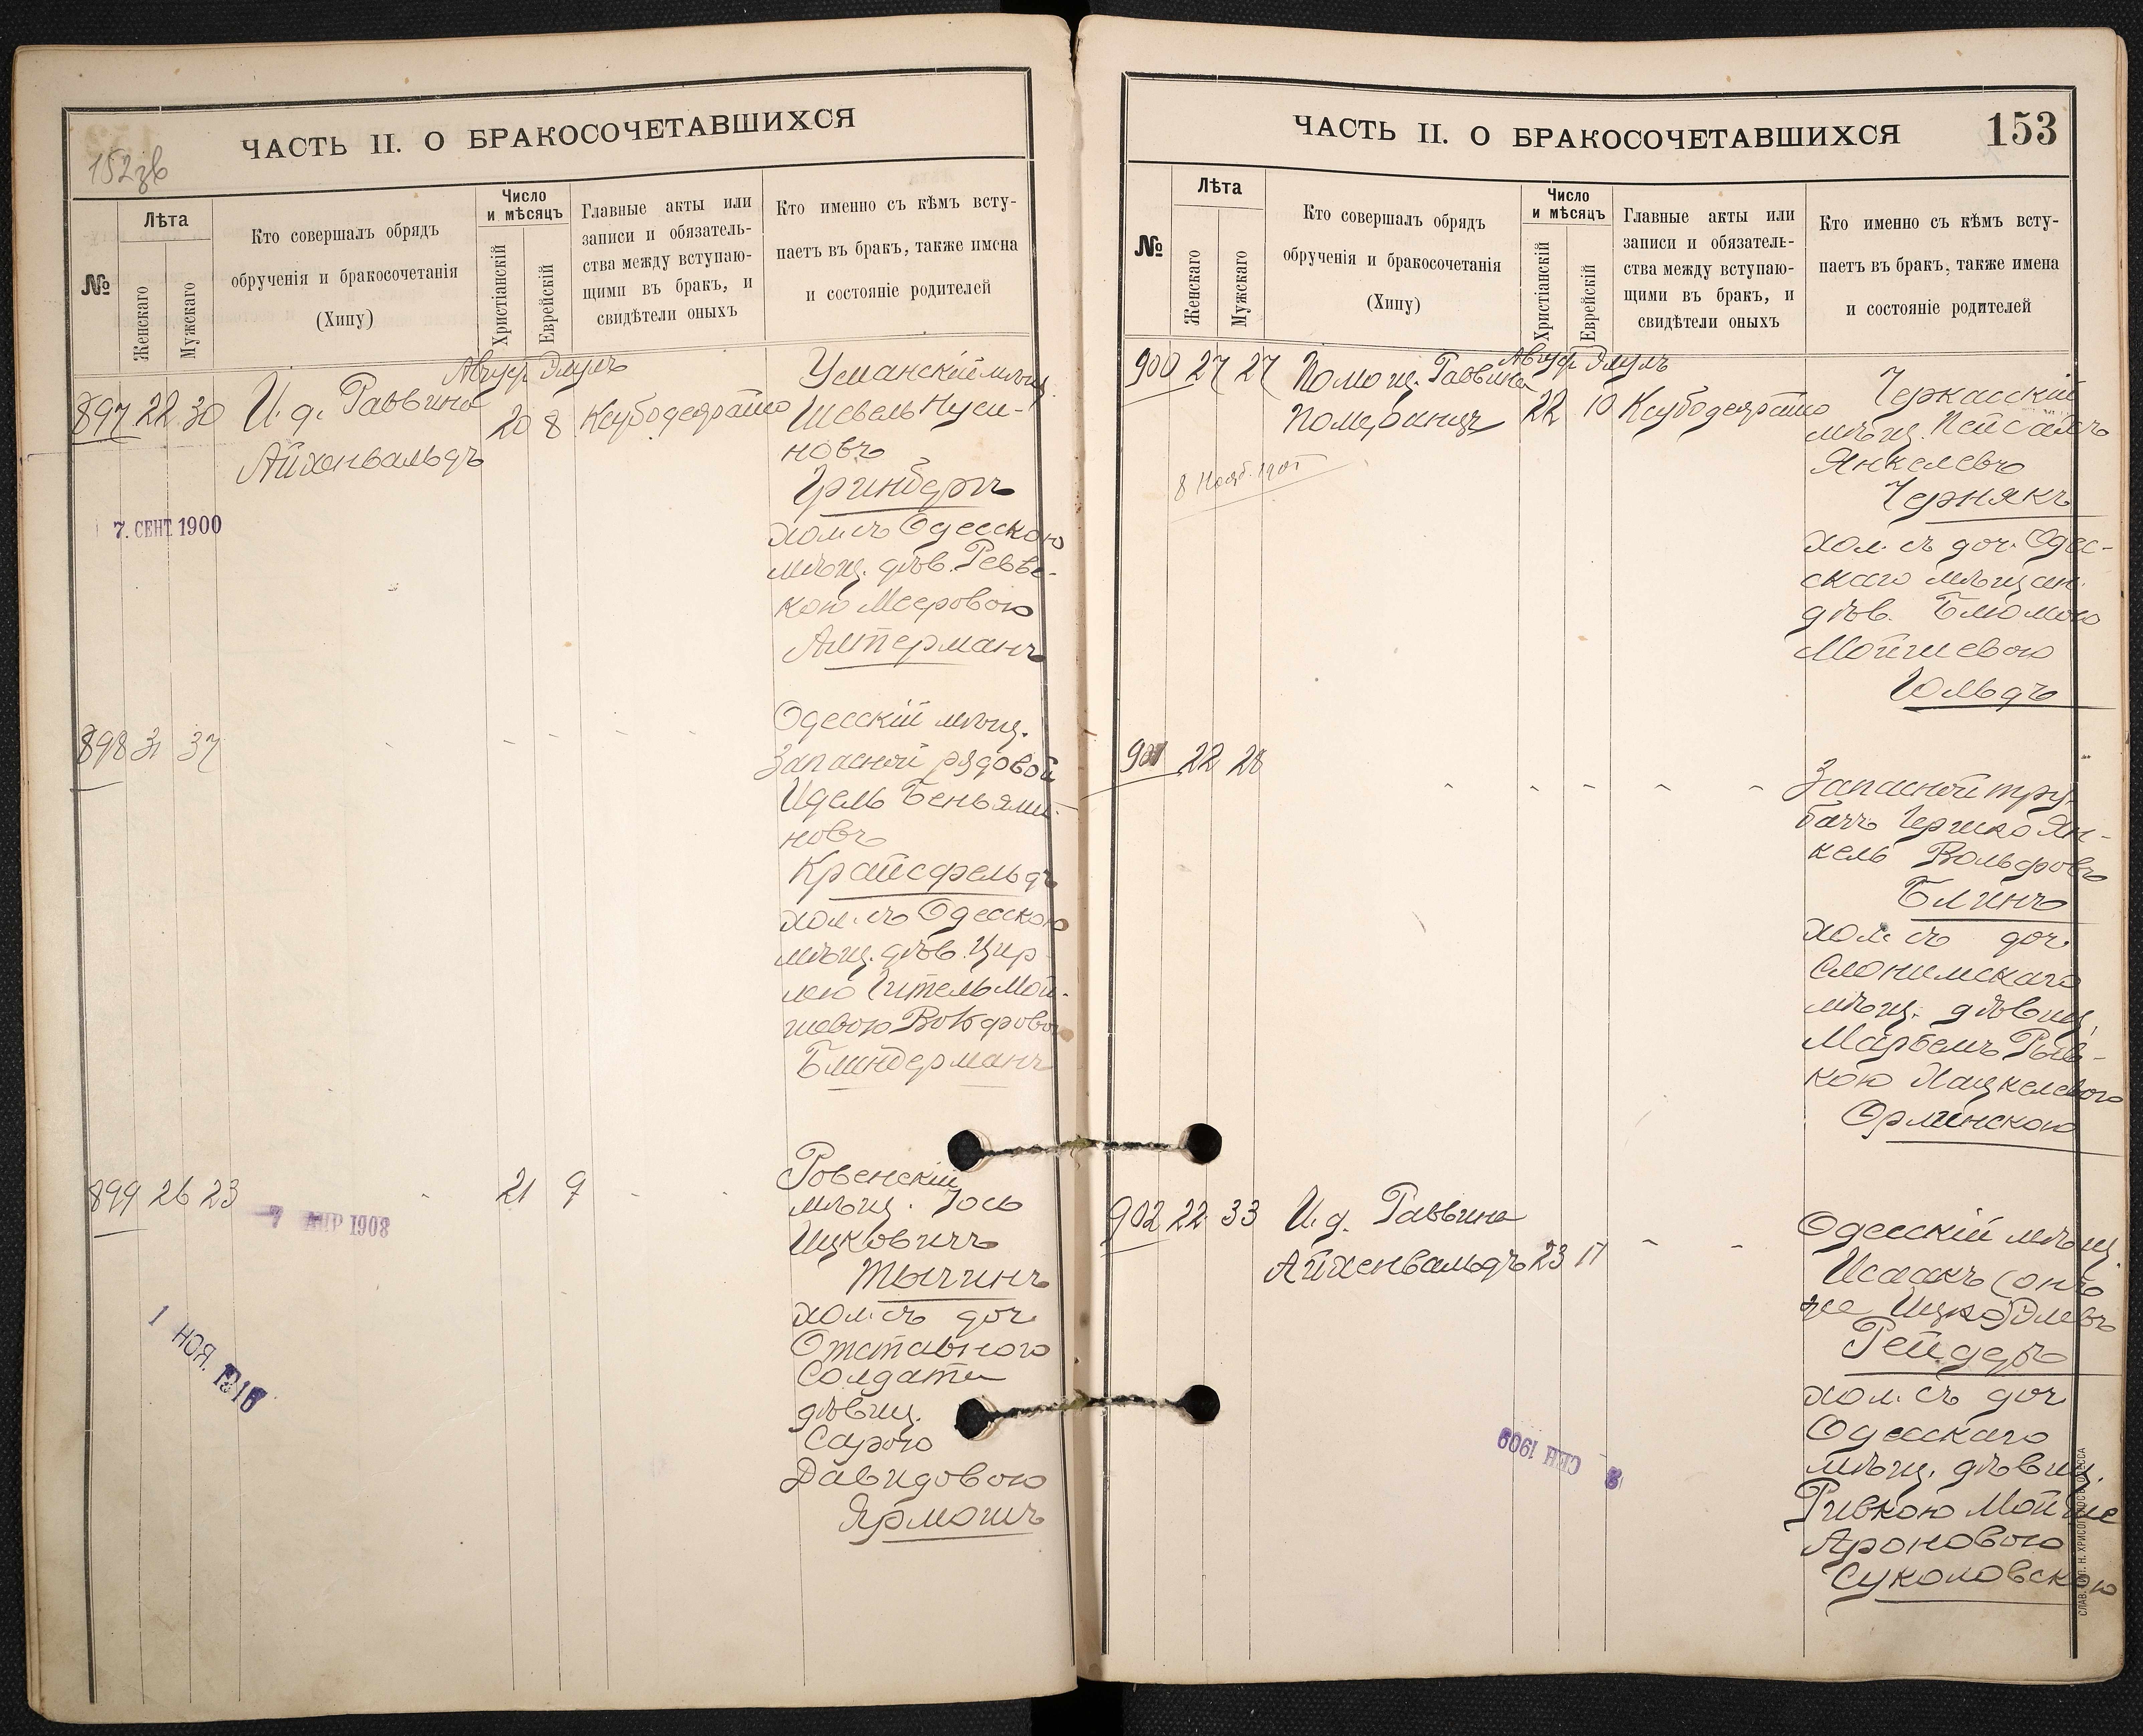 ЧАСТЬ II. О БРАКОСОЧЕТАВШИХСЯ
152зв
№
Лѣта
Женскаго
Мужскаго
Кто совершалъ обрядъ
обрученія и бракосочетанія
(Хипу)
Число
и мѣсяцъ
Христіанскій
Еврейскій
Главные акты или
записи и обязатель-
ства между вступаю-
щими въ бракъ, и
свидѣтели оныхъ
Кто именно съ кѣмъ всту-
паетъ въ бракъ, также имена
и состояніе родителей
Август Элулъ
897 22 30 И. д. Раввина 20 8
Айхенвальдъ
7. СЕНТ 1900
Уманскій мѣщ.
Шевель Нуси-
новъ
Гринбергъ
хол. съ Одесскою
мѣщ. дѣв. Ревве-
кою Мееровою
Альтерманъ
898 31 37 - - - - -
Одесскій мѣщ.
Запасной рядовой
Идель Беньями-
новъ
Крайсфельдъ
хол. съ Одесскою
мѣщ. дѣв. Цир-
лею Гитель Мой-
шевою
Блиндерманъ
899 26 23 - 21 9 - -
7 АПР 1908
1 НОЯ.
Ровенскій
мѣщ. Іось
Ицковичъ
Тычинъ
хол. съ доч.
Отставного
Солдата
дѣвиц.
Сарою
Давидовою
Ярмошъ
ЧАСТЬ II. О БРАКОСОЧЕТАВШИХСЯ
153
№
Лѣта
Женскаго
Мужскаго
Кто совершалъ обрядъ
обрученія и бракосочетанія
(Хипу)
Число
и мѣсяцъ
Христіанскій
Еврейскій
Главные акты или
записи и обязатель-
ства между вступаю-
щими въ бракъ, и
свидѣтели оныхъ
Кто именно съ кѣмъ всту-
паетъ въ бракъ, также имена
и состояніе родителей
Август Элулъ
900 27 27 Помощ. Раввина
Померанцъ 22 10
8 Нояб. 1905
Черкасскій
мѣщ. Пейсахъ
Янкелевъ
Чернякъ
хол. съ доч. Одес-
скаго мѣщан.
дѣв. Блюмою
Мойшевою
Гольдъ
901 22 28 - - - - -
Запасной тру-
бачъ Гершко Ян-
кель Вольфовъ
Блинъ
хол. съ доч.
Слонимскаго
мѣщ. дѣвиц.
Марьемъ Рыв-
кою Хацкелевою
Орлинскою
902 22 33 И. д. Раввина
Айхенвальдъ 23 11 - -
СЕН 1909
Одесскій мѣщ.
Исаакъ (онъ
же Ицко) Элевъ
Рейдеръ
хол. съ доч
Одесскаго
мѣщ. дѣвиц.
Ривкою Мойше
Ароновою
Суколовскою
СЛАВ. ТИП. Н. ХРИСОГЕЛОСЪ ОДЕССА